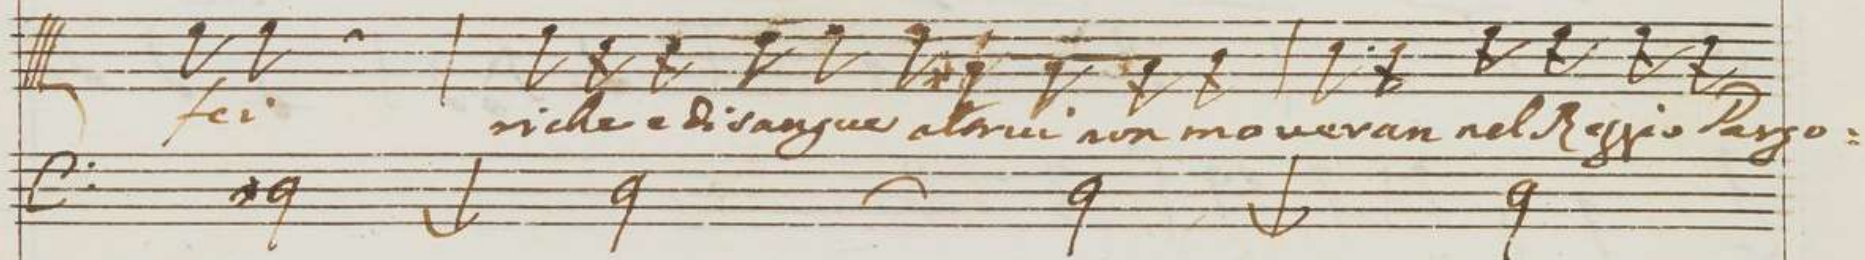 fei riche e di sangue altrui non moveran nel Reggio Pargo=